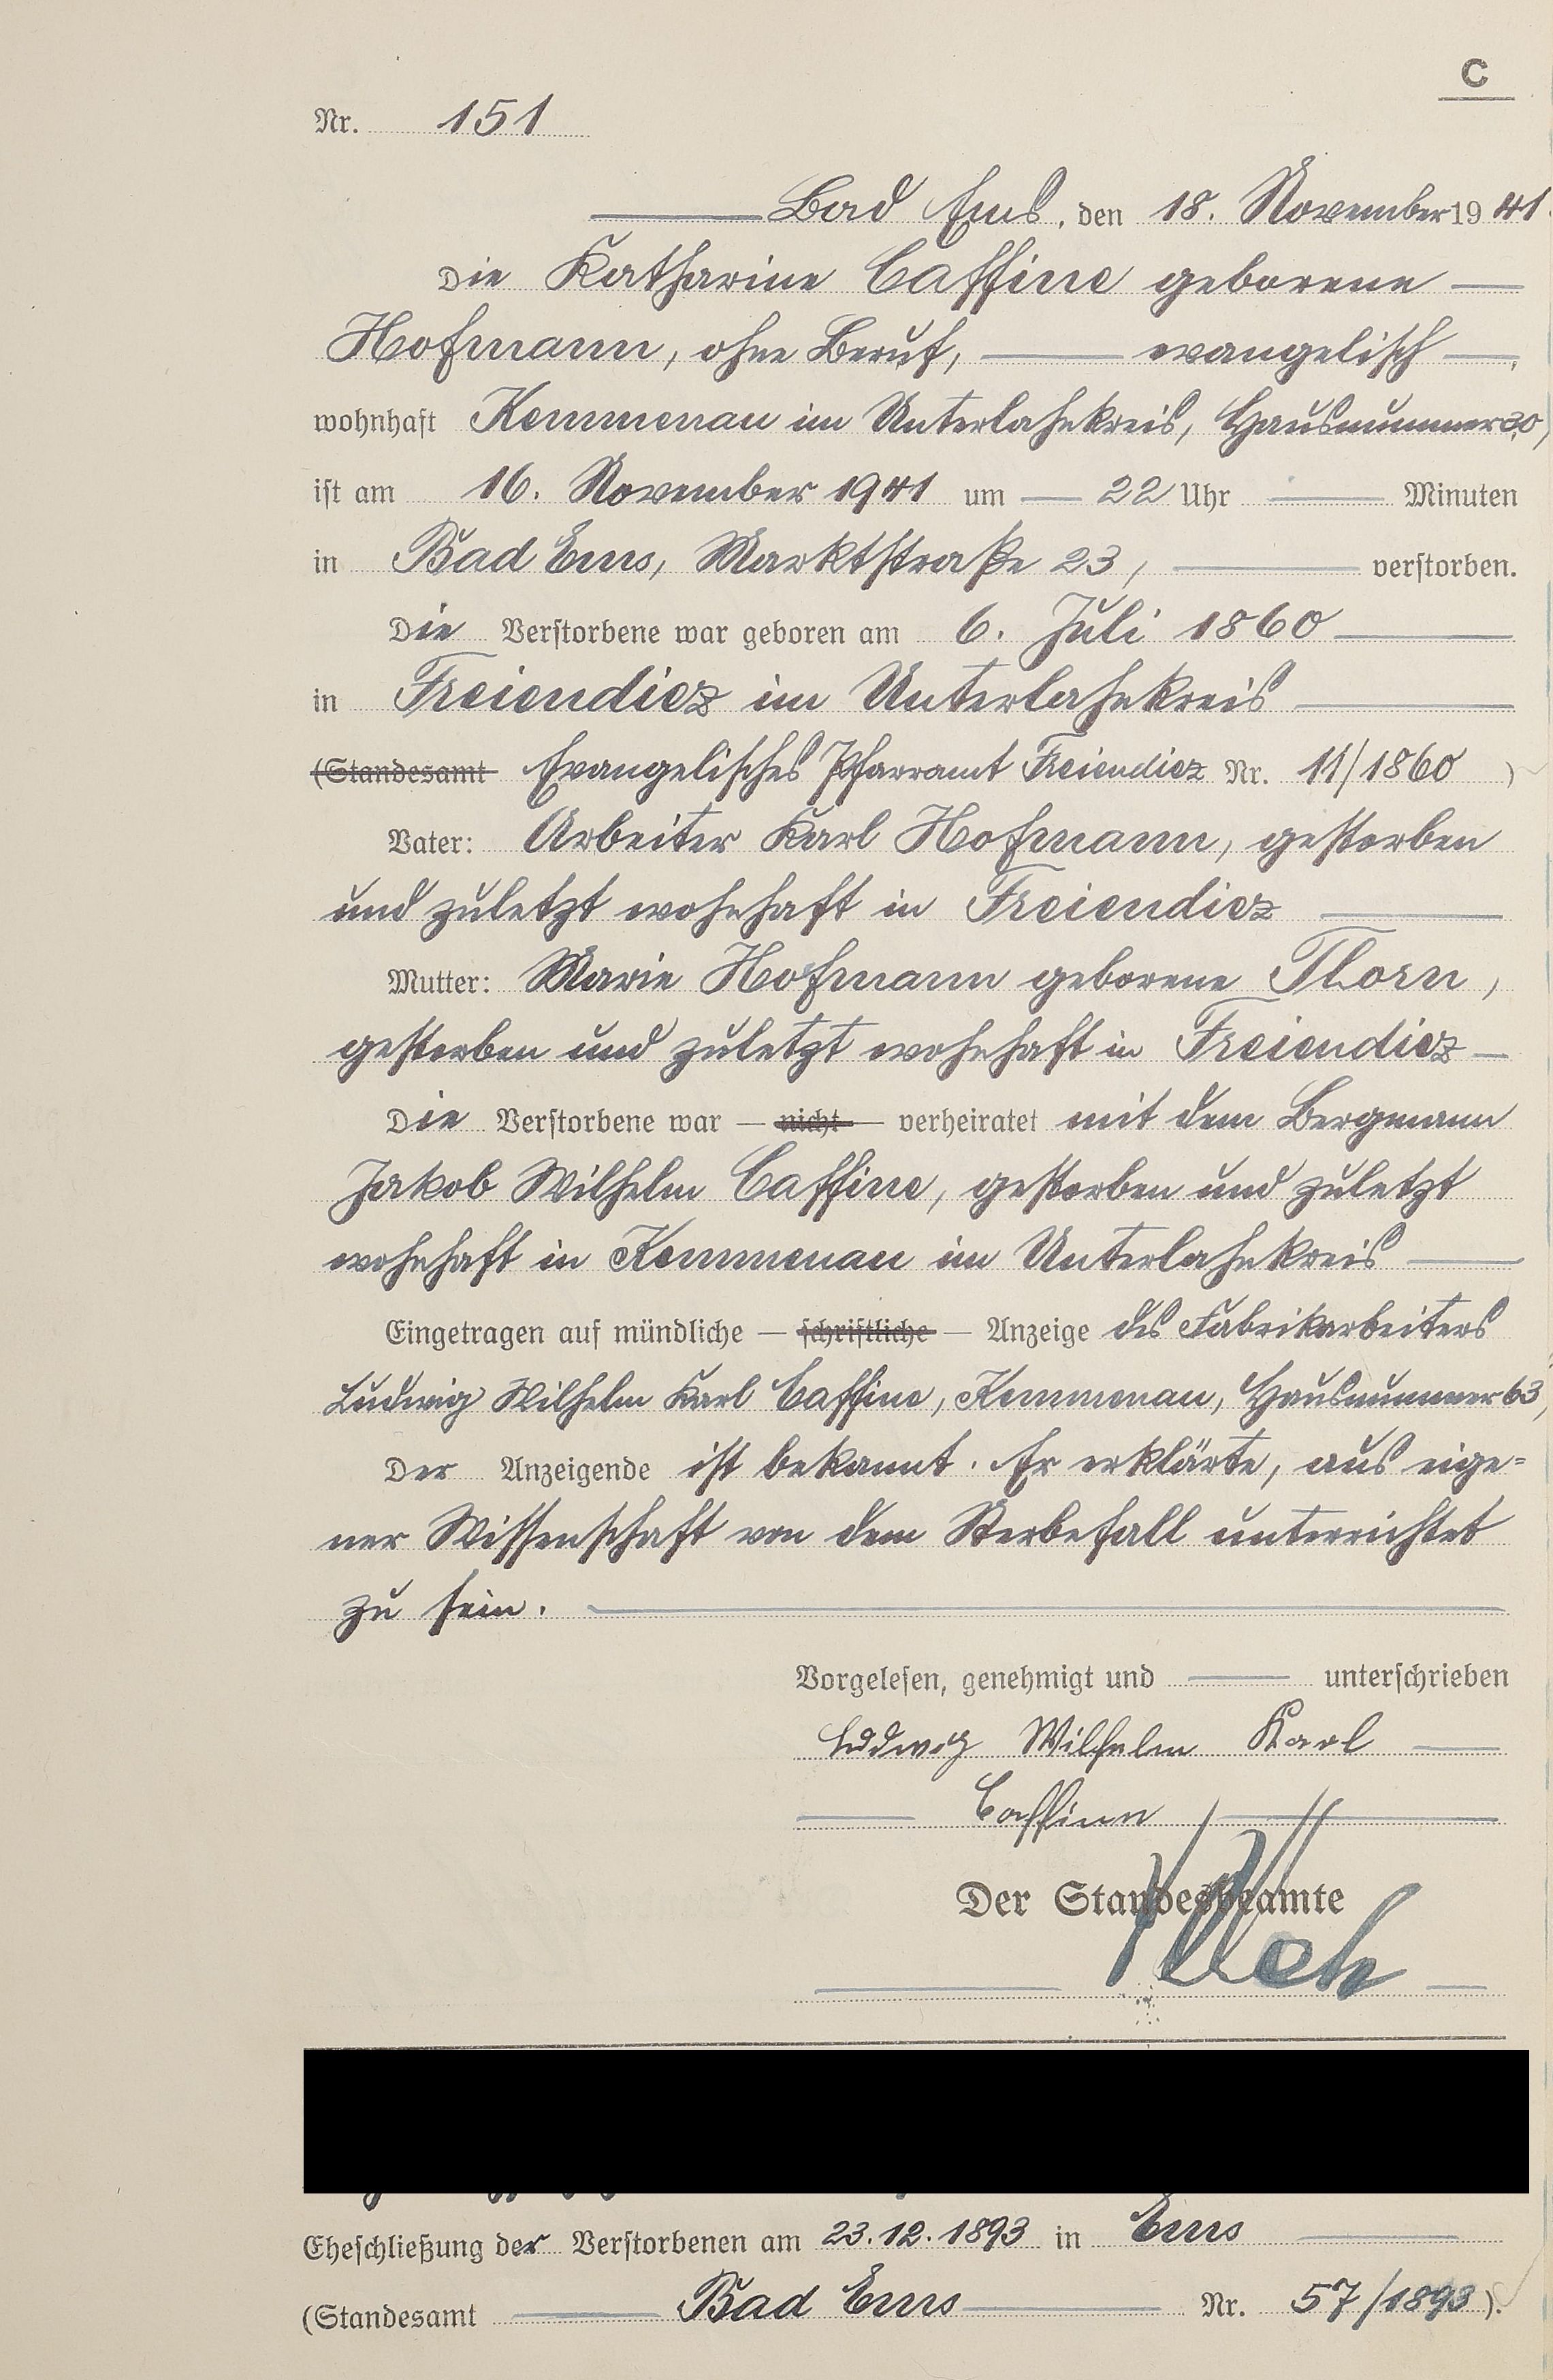 C
Nr. 151
Bad Ems, den 18. November 1941.
Die Katharine Caffine geborene
Hofmann, ohne Beruf, evangelisch,
wohnhaft Kemmenau im Unterlahnkreis, Hausnummer 30,
ist am 16. November 1941 um 22 Uhr Minuten
in Bad Ems, Marktstraße 23, verstorben.
Die Verstorbene war geboren am 6. Juli 1860
in Freiendiez im Unterlahnkreis
(Standesamt Evangelisches Pfarramt Freiendiez Nr. 11/1860)
Vater: Arbeiter Karl Hofmann, gestorben
und zuletzt wohnhaft in Freiendiez
Mutter: Marie Hofmann geborene Thorn,
gestorben und zuletzt wohnhaft in Freiendiez
Die Verstorbene war — nicht — verheiratet mit dem Bergmann
Jakob Wilhelm Caffine, gestorben und zuletzt
wohnhaft in Kemmenau im Unterlahnkreis
Eingetragen auf mündliche — schriftliche — Anzeige des Fabrikarbeiters
Ludwig Wilhelm Karl Caffine, Kemmenau, Hausnummer 63,
Der Anzeigende ist bekannt. Er erklärte, aus eige=
ner Wissenschaft von dem Sterbefall unterrichtet
zu sein.
Vorgelesen, genehmigt und unterschrieben
Ludwig Wilhelm Karl
Caffine
Der Standesbeamte
Eheschließung der Verstorbenen am 23.12.1893 in Ems
(Standesamt Bad Ems Nr. 57/1893).